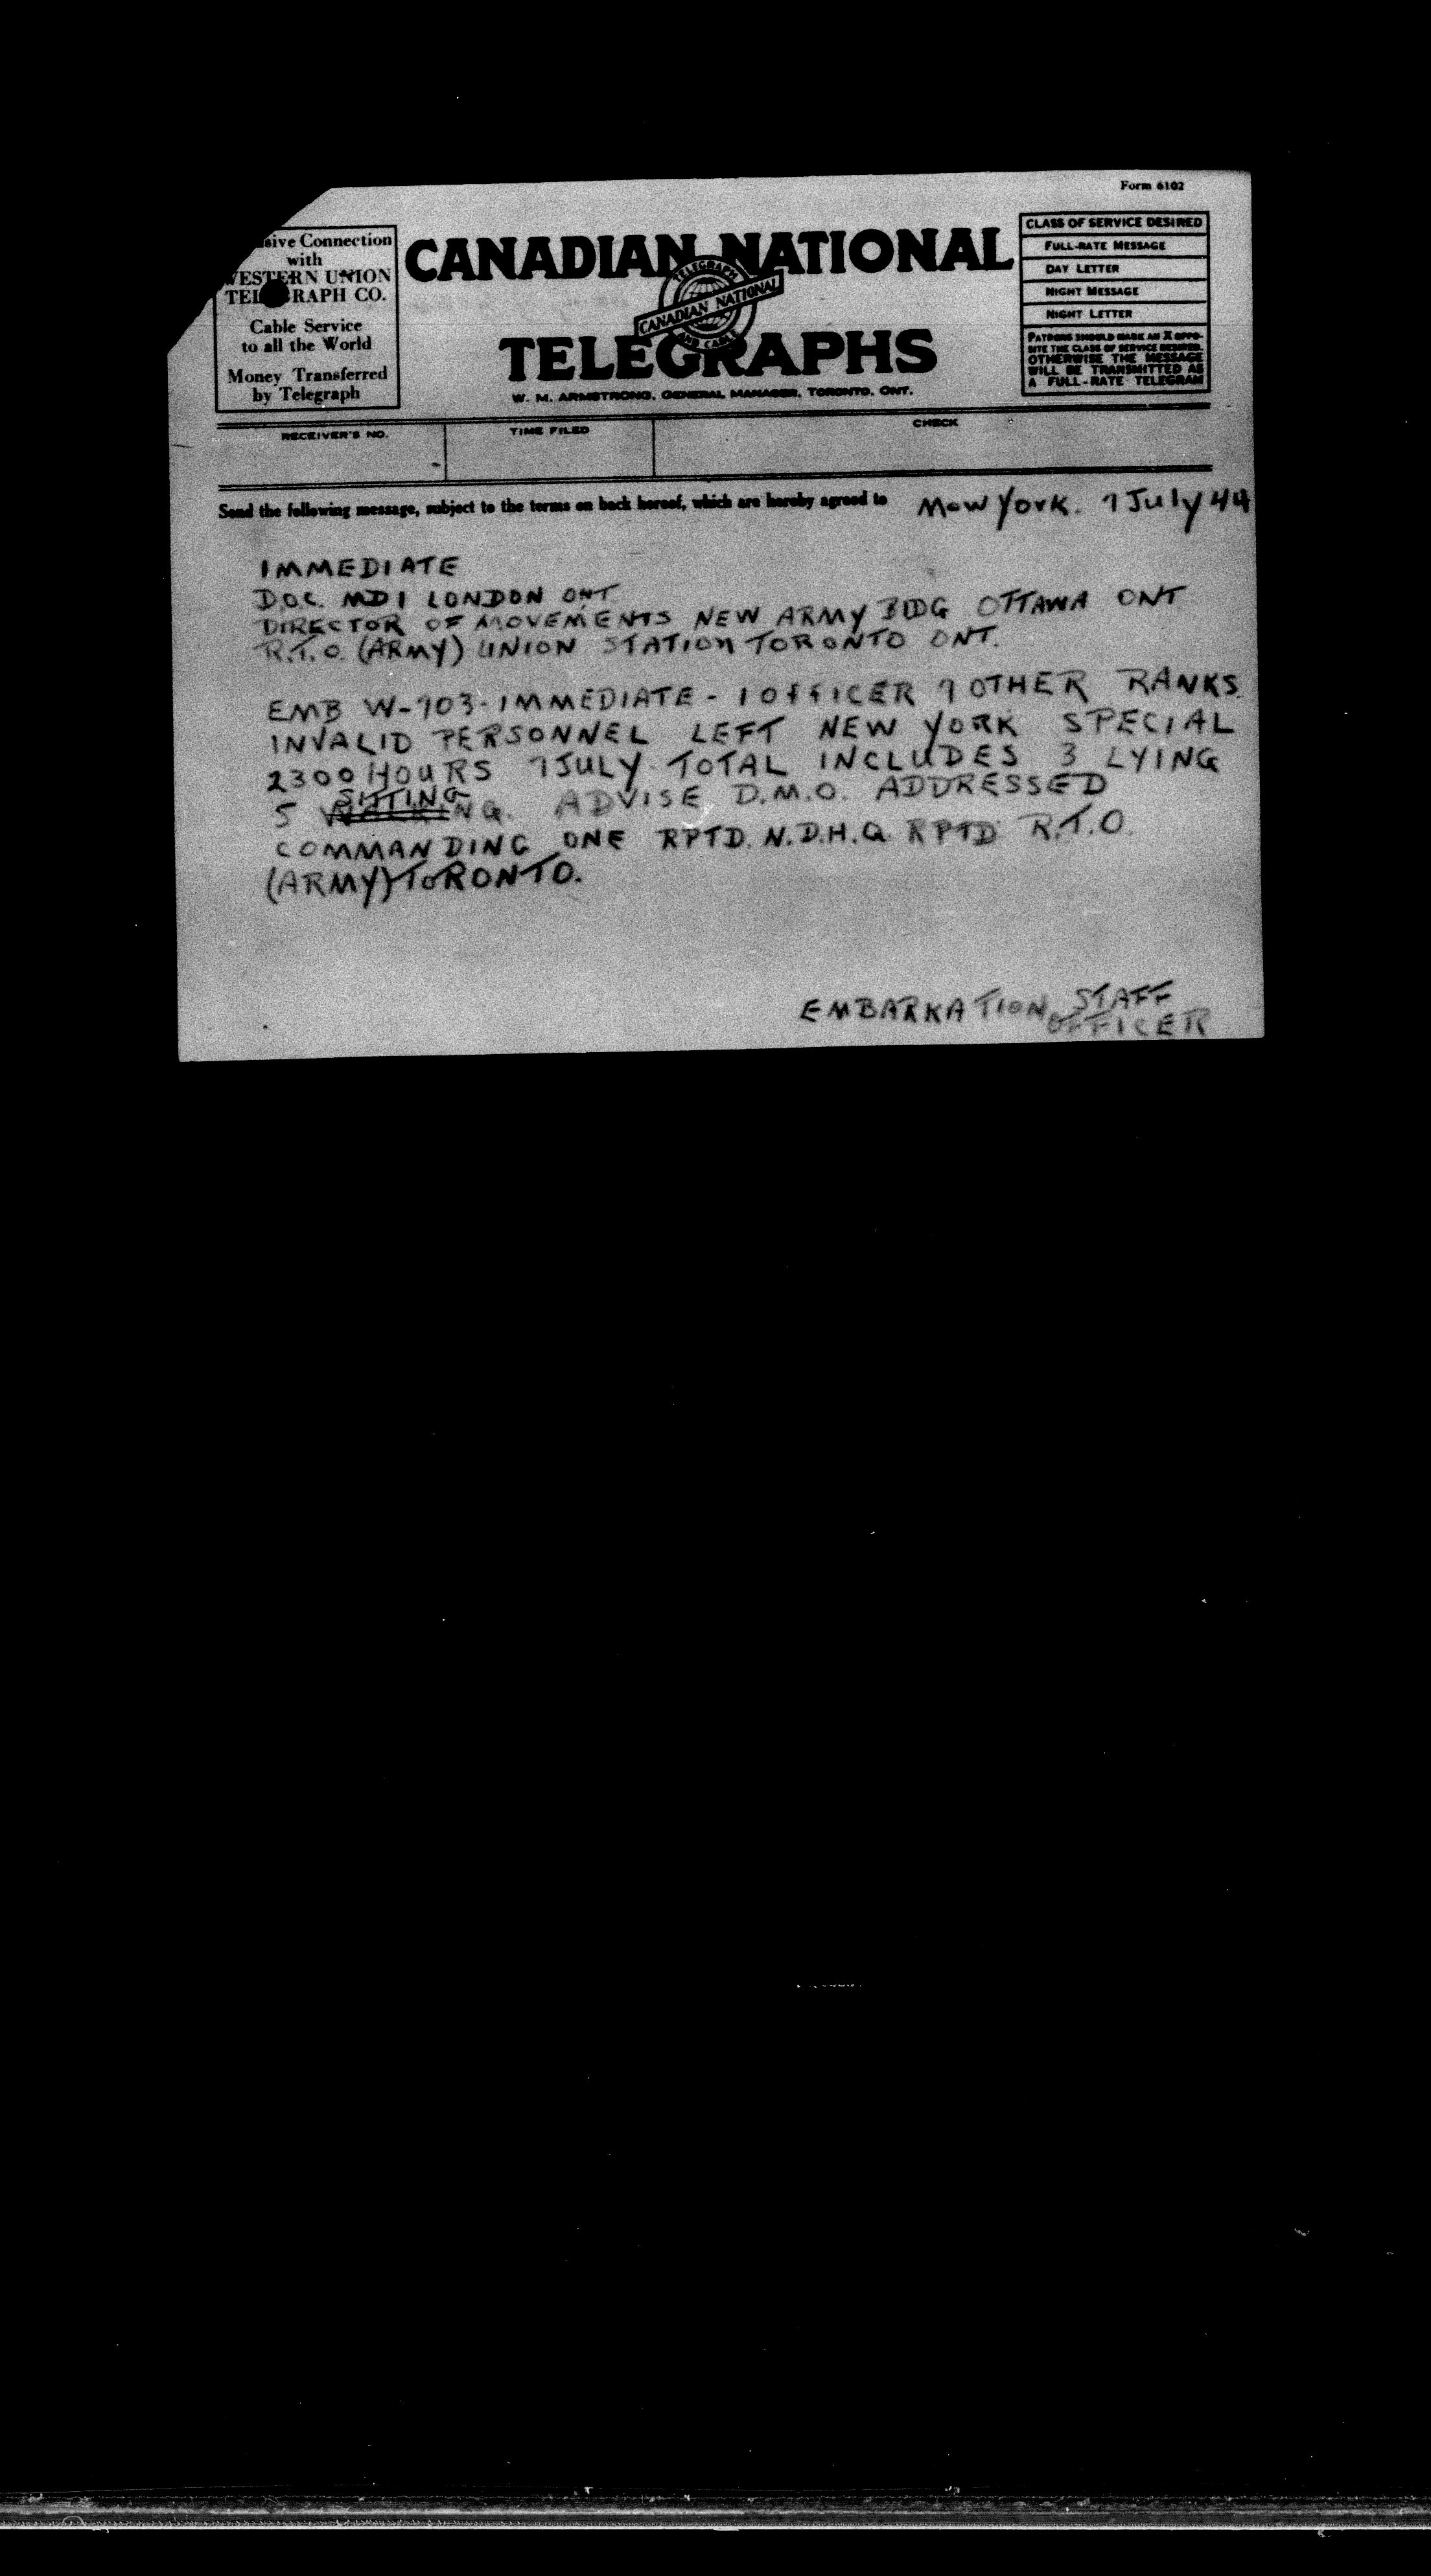 Form 6102
sive Connection
with
WESTERN UNION
TELEGRAPH CO.
Cable Service
to all the World
Money Transferred
by Telegraph
CANADIAN NATIONAL
TELEGRAPH
CANADIAN NATIONAL
AND CABLE
TELEGRAPHS
W. M. ARMSTRONG, GENERAL MANAGER, TORONTO, ONT.
CLASS OF SERVICE DESIRED
FULL-RATE MESSAGE
DAY LETTER
NIGHT MESSAGE
NIGHT LETTER
PATRONS SHOULD MARK AN X OPPO-
SITE THE CLASS OF SERVICE DESIRED.
OTHERWISE THE MESSAGE
WILL BE TRANSMITTED AS
A FULL-RATE TELEGRAM
RECEIVER'S NO.
TIME FILED
CHECK
Send the following message, subject to the terms on back hereof, which are hereby agreed to
New York. 7 July 44
IMMEDIATE
D.O.C. MD 1 LONDON ONT
DIRECTOR OF MOVEMENTS NEW ARMY BLDG OTTAWA ONT
R.T.O. (ARMY) UNION STATION TORONTO ONT.
EMB W-703-IMMEDIATE - 1 OFFICER 7 OTHER RANKS
INVALID PERSONNEL LEFT NEW YORK SPECIAL
2300 HOURS 7 JULY TOTAL INCLUDES 3 LYING
5 SITTING. ADVISE D.M.O. ADDRESSED
COMMANDING ONE RPTD. N.D.H.Q. RPTD R.T.O.
(ARMY) TORONTO.
EMBARKATION STAFF
OFFICER